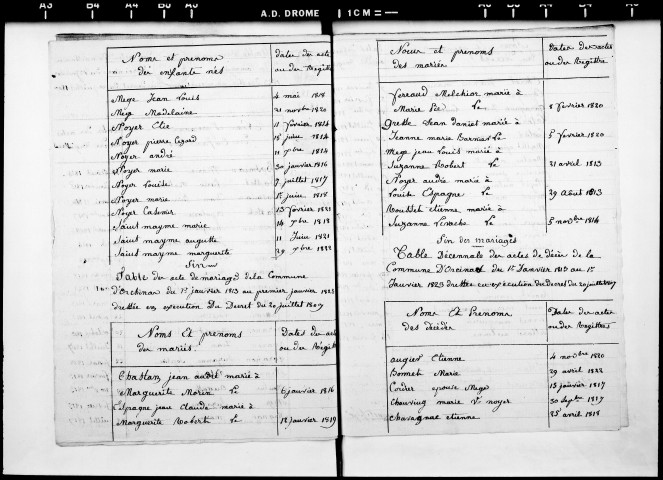 A3 B4 A4 B5 A5
A.D. DROME 1CM
A5 B5 A4 B4 A3
Noms et prenoms
des enfants nés
dates des actes
ou des Registre
Mege Jean Louis 4 mai 1818
Mege Madelaine 21 novbre 1820
Noyer Elie 11 fevrier 1814
Noyer pierre 18 juin 1814
Noyer andré 11 xbre 1814
Noyer marie 30 janvier 1816
Noyer Louise 7 juillet 1817
Noyer marie 1er juin 1818
Noyer Casimir 13 fevrier 1821
Saint mayme marie 14 xbre 1813
Saint mayme auguste 11 Juin 1821
Saint mayme marguerite 29 xbre 1822
fin
Table des acte de mariage de la Commune
d'Orcinas du 1er janvier 1813 au premier janvier 1823
dressée en execution Du Decret du 20 juillet 1807
Noms Et prenoms
des mariés
Dates des actes
ou des Registre
Chastan jean andré marié à
Marguerite Morin le 6 janvier 1816
Espagne jean Claude marié à
Marguerite Robert le 12 Janvier 1819
Noms et prenoms
des mariés
Dates des actes
ou des Registre
ferraud Melchior marié à
Marie le 8 fevrier 1820
Jean daniel marié à
Jeanne marie le 5 fevrier 1820
Mege jean Louis marié à
Suzanne Robert le 21 avril 1813
Noyer andré marié à
Louise Espagne le 29 Août 1813
Rousset etienne marié à
Suzanne le 5 novbre 1814
fin des mariages
Table Décennale des actes de décès de la
Commune D'Orcinas du 1er Janvier 1813 au 1er
Janvier 1823 dressée en exécution du Decret du 20 juillet 1807
Noms Et Prenoms
des décédés
Dates des actes
ou des Registres
augier Etienne 4 novbre 1820
Bonnet Marie 29 avril 1822
epouse Mege 15 janvier 1817
marie ve noyer 30 Septbre 1817
Chavagnac etienne 25 avril 1818